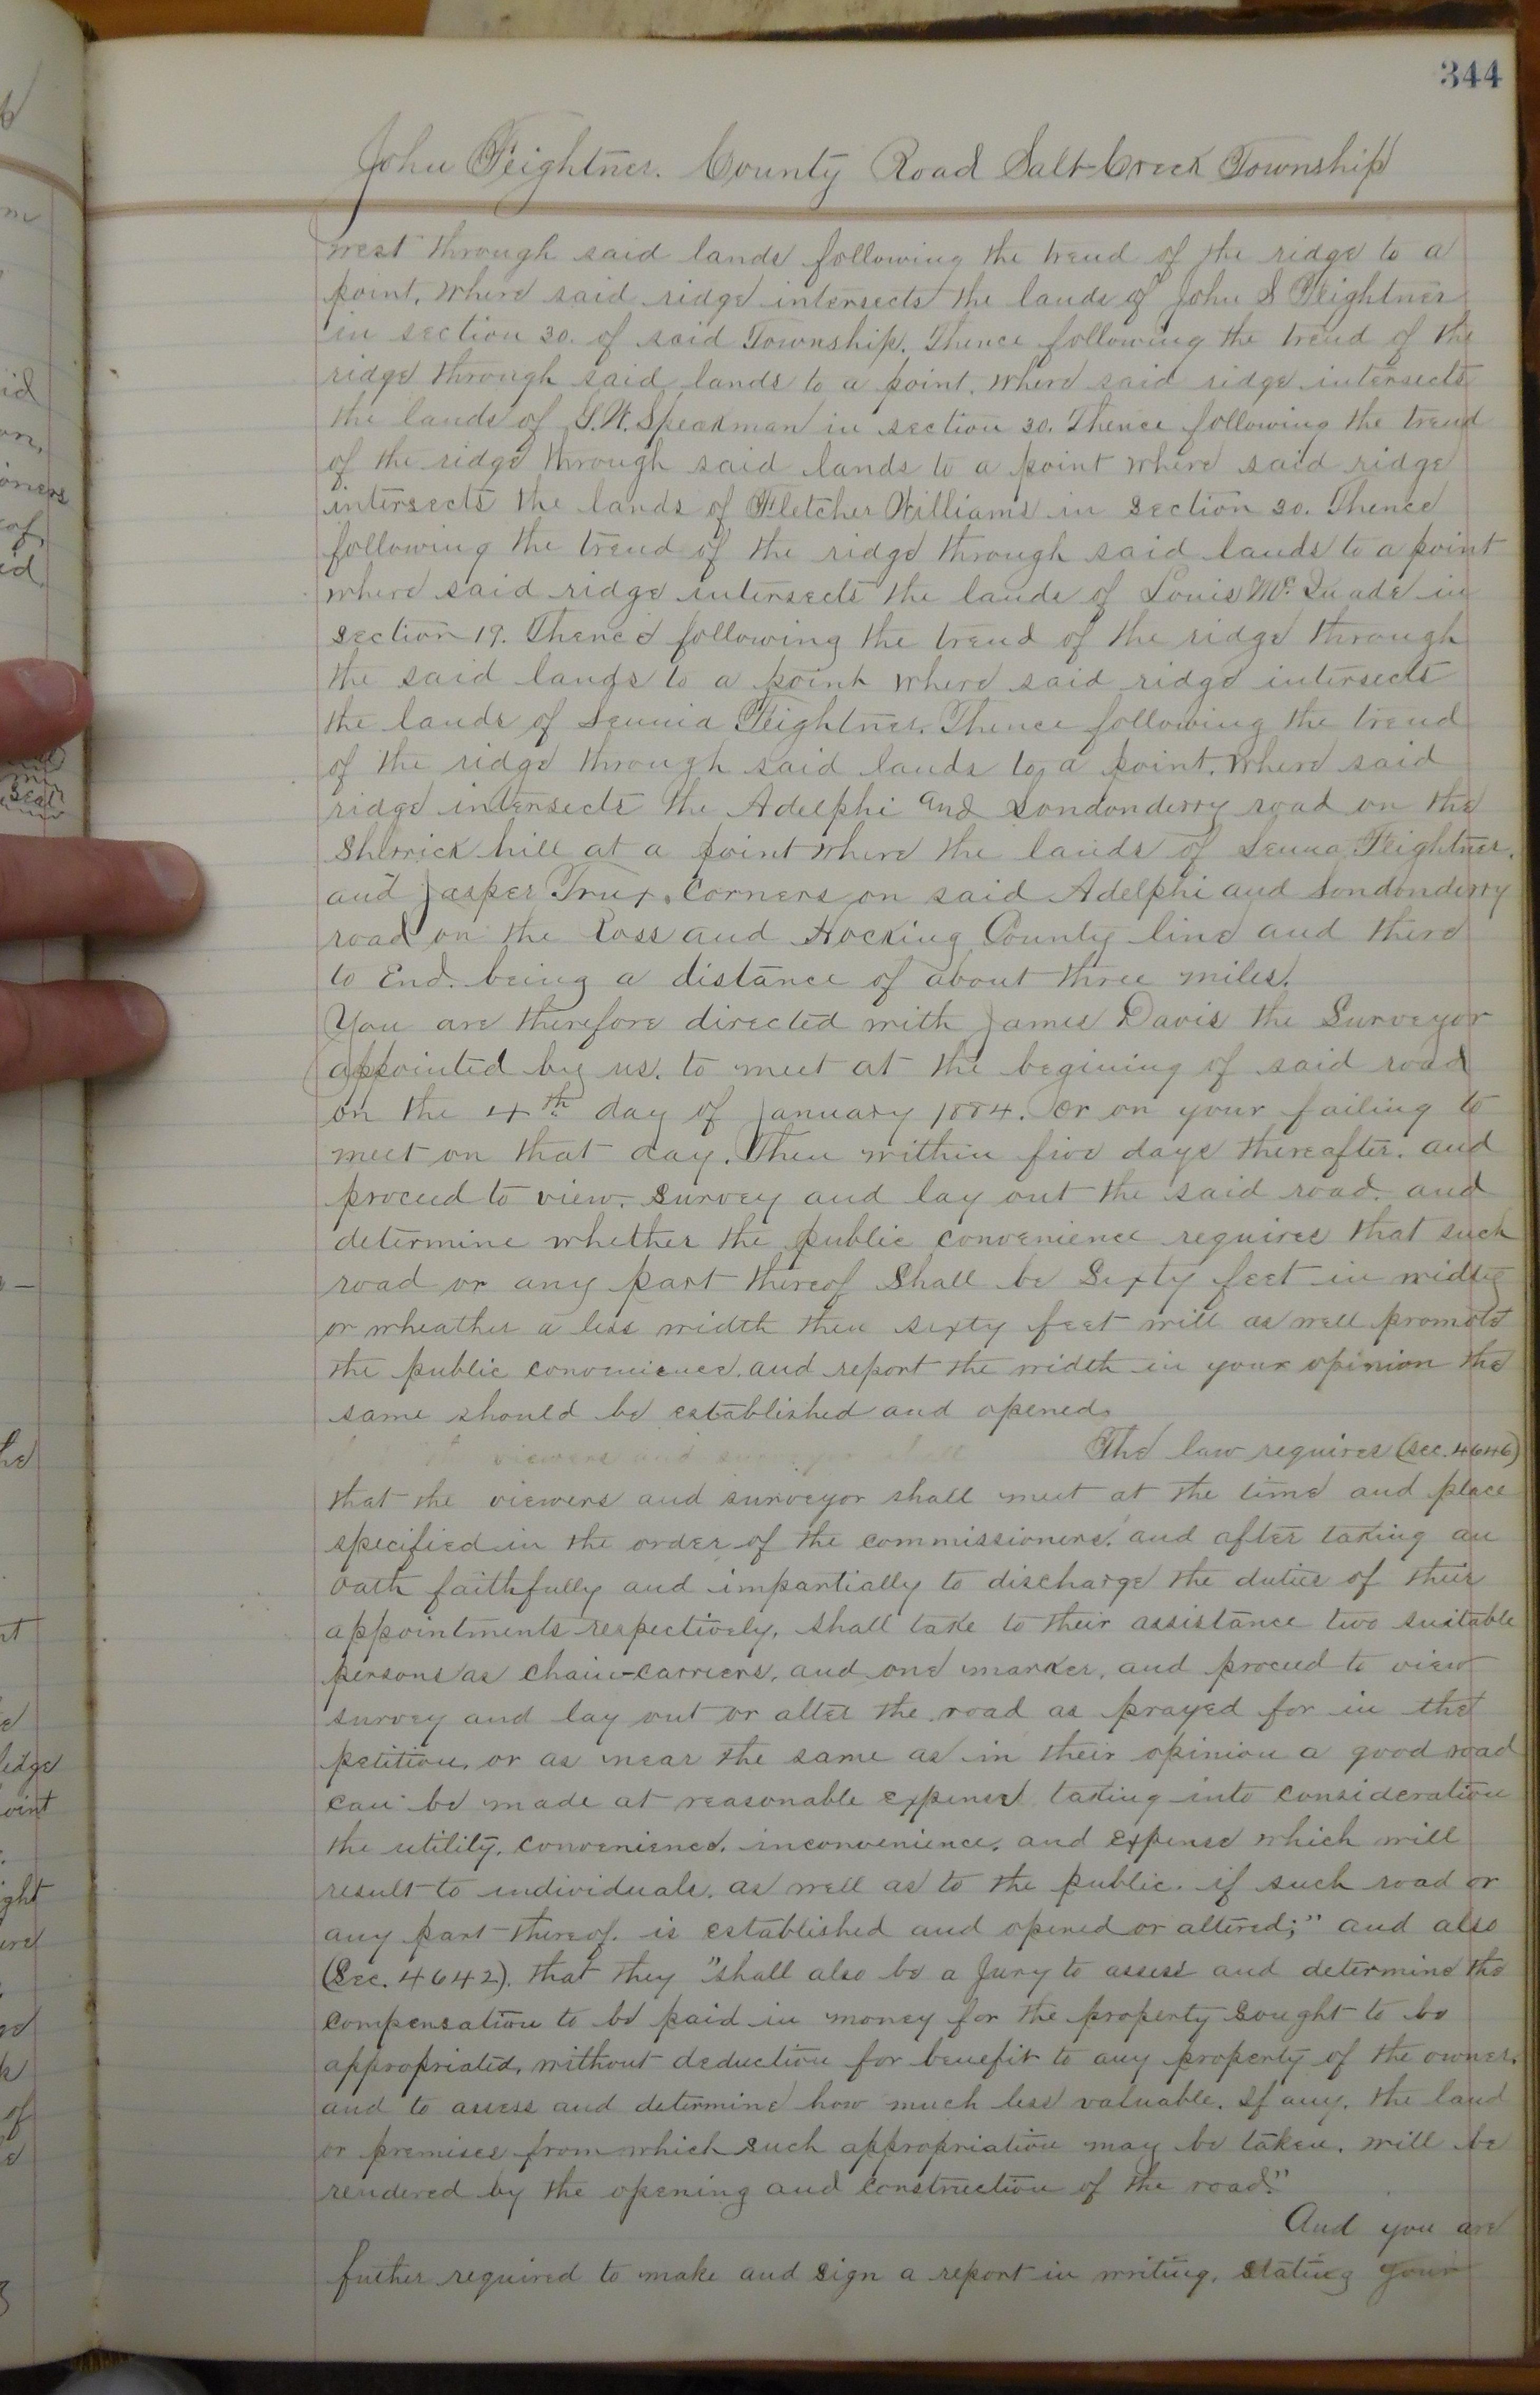 344
John Feightner. County Road Salt-Creek Township
west through said lands following the trend of the ridge to a
point, where said ridge intersects the lands of John S Feightner
in section 30. of said Township. Thence following the trend of the
ridge through said lands to a point. where said ridge intersects
the lands of G.W. Speakman in section 30. Thence following the trend
of the ridge through said lands to a point where said ridge
intersects the lands of Fletcher Williams in section 30. Thence
following the trend of the ridge through said lands to a point
where said ridge intersects the lands of Louis Mc.Quade in
section 19. Thence following the trend of the ridge through
the said lands to a point where said ridge intersects
the lands of Feightner. Thence following the trend
of the ridge through said lands to a point. where said
ridge intersects the Adelphi and Londonderry road on the
Sherrick hill at a point where the lands of Feightner.
and Jasper Trux. Corners on said Adelphi and Londonderry
road on the Ross and Hocking County line and there
to End. being a distance of about three miles.
You are therefore directed with James Davis the Surveyor
appointed by us. to meet at the begining of said road
on the 4th day of January 1884. or on your failing to
meet on that day. Then within five days thereafter. and
proceed to view. survey and lay out the said road. and
determine whether the public convenience requires that such
road or any part thereof shall be Sixty feet in width
or wheather a less width then sixty feet will as well promote
the public convenience. and report the width in your opinion the
same should be established and opened.
viewers and
The law requires (sec. 4646)
that the viewers and surveyor shall meet at the time and place
specified in the order of the commissioners. and after taking an
oath faithfully and impartially to discharge the duties of their
appointments respectively, shall take to their assistance two suitable
persons as chain-carriers, and one marker, and proceed to view
survey and lay out or alter the road as prayed for in the
petition, or as near the same as in their opinion a good road
can be made at reasonable expense taking into consideration
the utility. convenience. inconvenience. and expense which will
result to individuals. as well as to the public. if such road or
any part thereof. is established and opened or altered;" and also
(Sec. 4642). that they "shall also be a Jury to assess and determine the
compensation to be paid in money for the property sought to be
appropriated, without deduction for benefit to any property of the owner.
and to assess and determine how much less valuable. if any. the land
or premises from which such appropriation may be taken. will be
rendered by the opening and construction of the road."
And you are
futher required to make and sign a report in writing. stating your